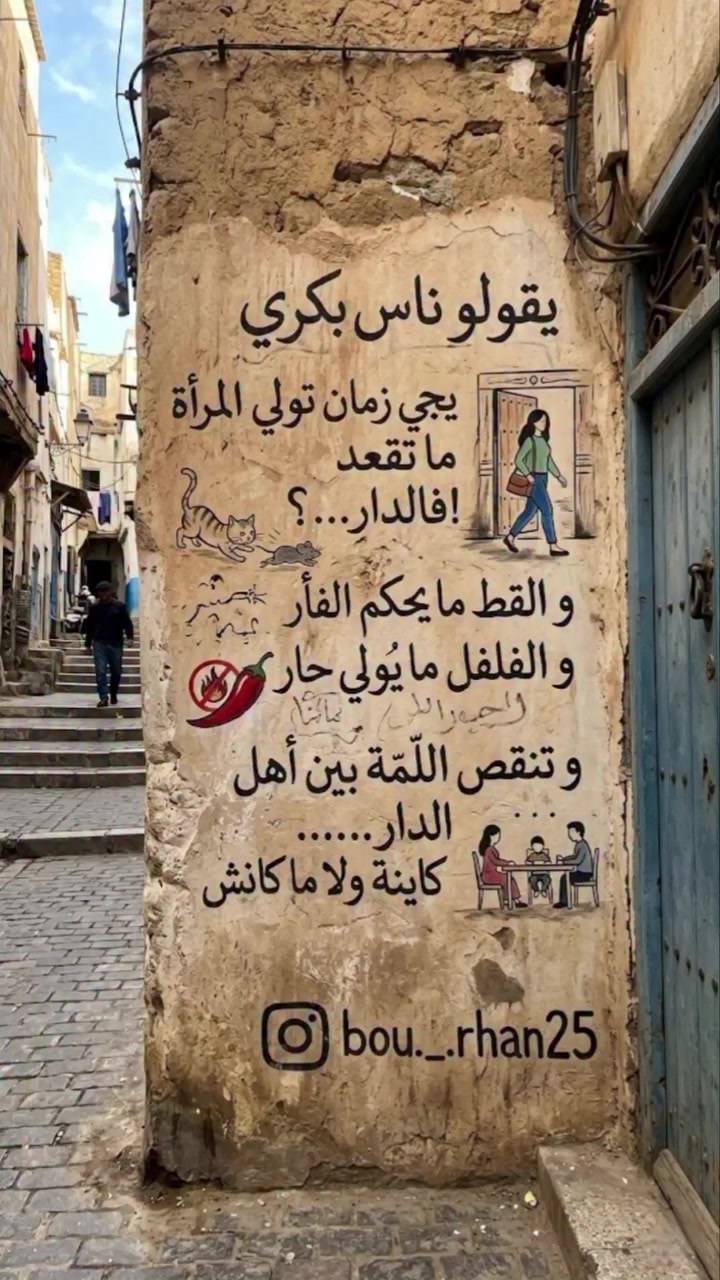 يقولو ناس بكري
يجي زمان تولي المرأة
ما تقعد
!فالدار...؟
و القط ما يحكم الفأر
و الفلفل ما يُولي حار
و تنقص اللّمّة بين أهل
الدار......
كاينة ولا ما كانش
bou._.rhan25